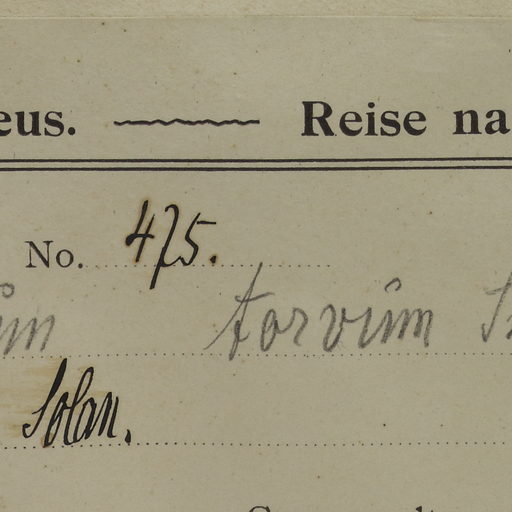 eus. Reise na
No. 475.
um torvum S
Solan.